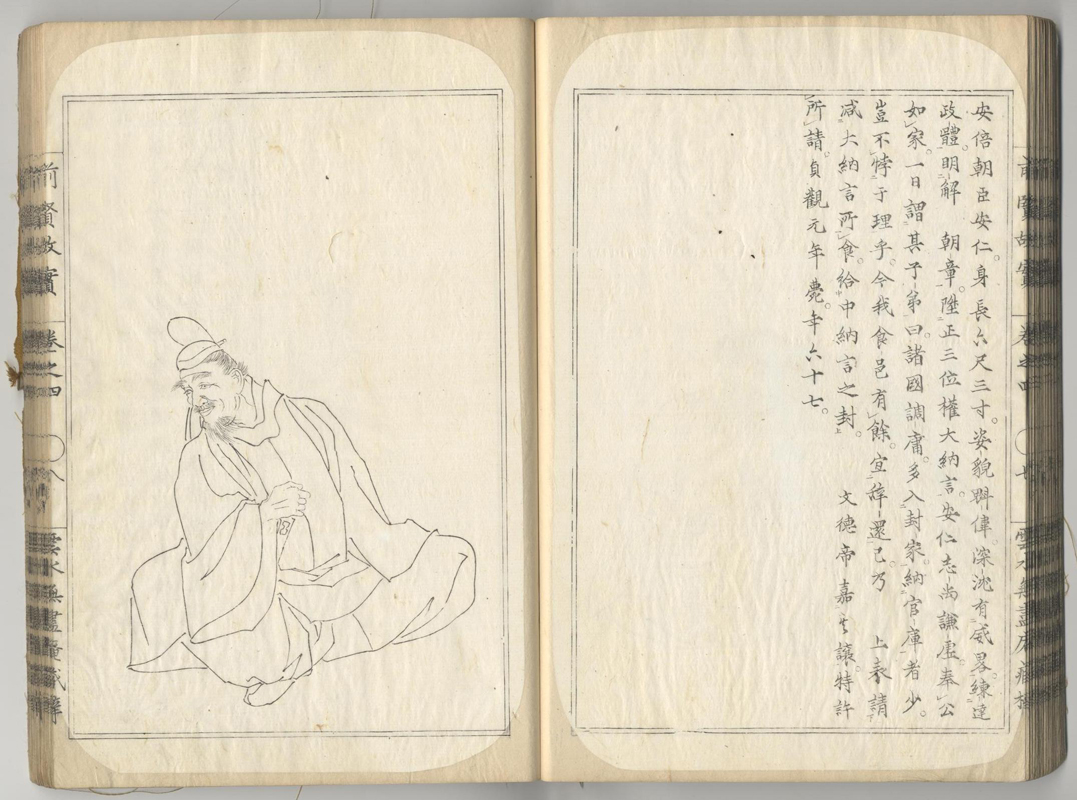 安倍朝臣安仁。身長六尺三寸。姿貌瓌偉。深沈有威畧。練達
政體。明解　朝章。陞正三位權大納言。安仁志尚謙虛。奉公
如家。一日謂其子弟曰。諸國調庸。多入封家。納官庫者少。
豈不悖于理乎。今我食邑有餘。宜辞還已。乃　上表請
减大納言所食。給中納言之封。　文德帝嘉其讓。特許
所請。貞觀元年薨。年六十七。
前賢故實　卷之四　七
前賢故實　卷之四　八　雲水無盡庵藏梓